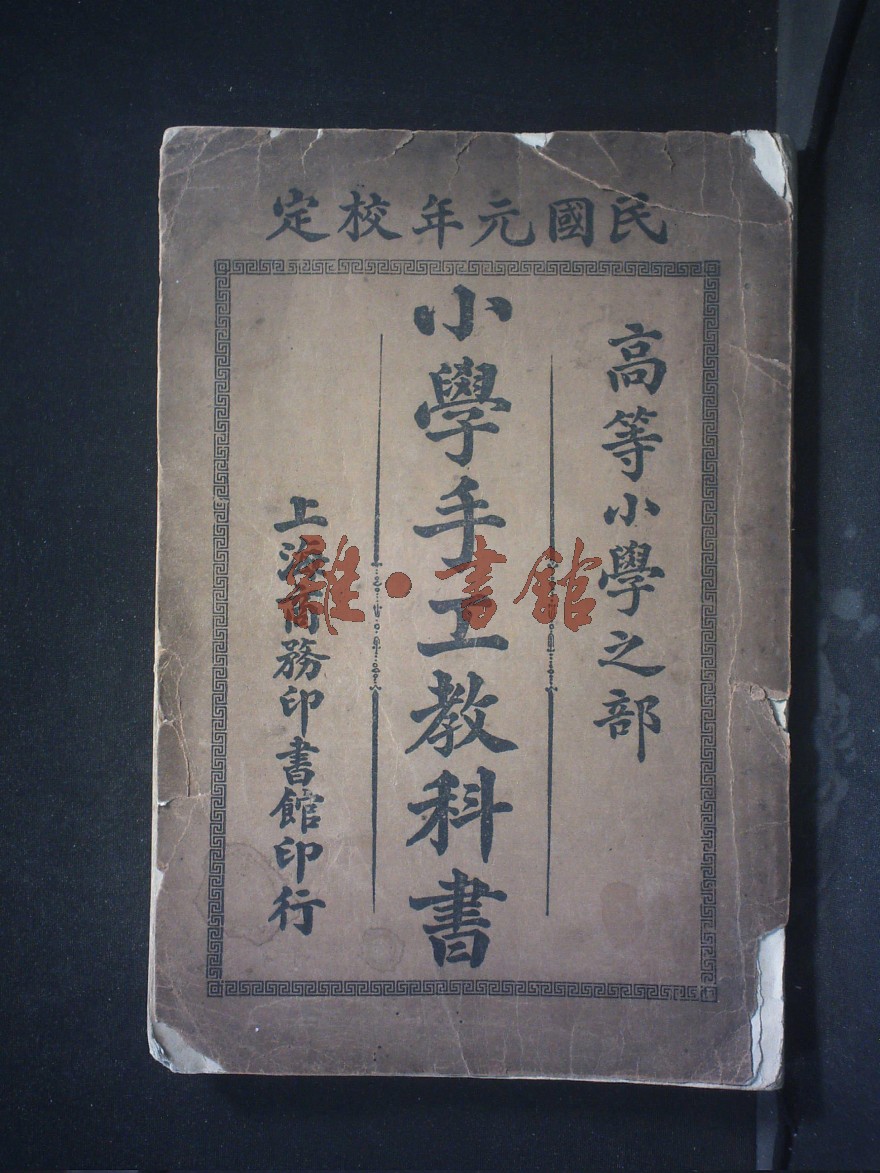 民國元年校定
高等小學之部
小學手工教科書
上海商務印書館印行
雜·書館